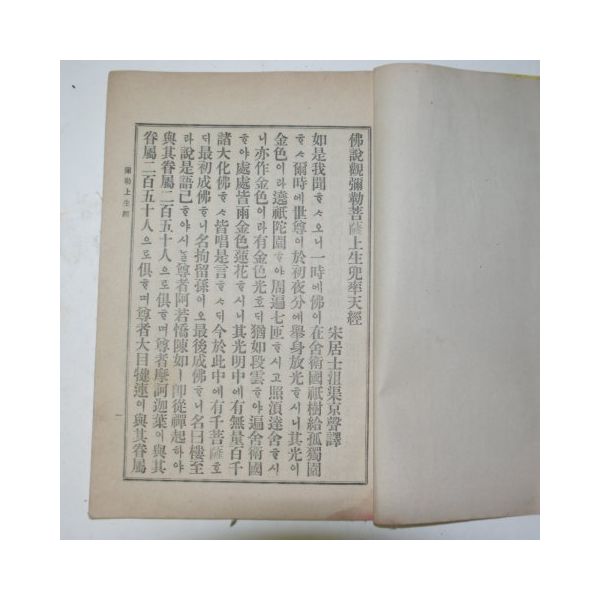 佛說觀彌勒菩薩上生兜率天經
宋居士沮渠京聲譯
如是我聞ᄒᆞᄉᆞ오니一時에佛이在舍衛國祇樹給孤獨園
ᄒᆞᄉᆞ爾時에世尊이於初夜分에擧身放光ᄒᆞ시니其光이
金色이라遶祇陀園ᄒᆞ야周遍七匝ᄒᆞ시고照須達舍ᄒᆞ시
니亦作金色이라有金色光호ᄃᆡ猶如段雲ᄒᆞ야遍舍衛國
ᄒᆞ야處處皆雨金色蓮花ᄒᆞ시니其光明中에有無量百千
諸大化佛ᄒᆞ샤皆唱是言ᄒᆞ샤ᄃᆡ今於此中에有千菩薩호
ᄃᆡ最初成佛ᄒᆞ니名拘留孫이오最後成佛ᄒᆞ니名曰樓至
라說是語已ᄒᆞ야시ᄂᆞᆯ尊者阿若憍陳如ㅣ卽從禪起ᄒᆞ야
與其眷屬二百五十人으로俱ᄒᆞ며尊者摩訶迦葉이與其
眷屬二百五十人으로俱ᄒᆞ며尊者大目犍連이與其眷屬
彌勒上生經
一